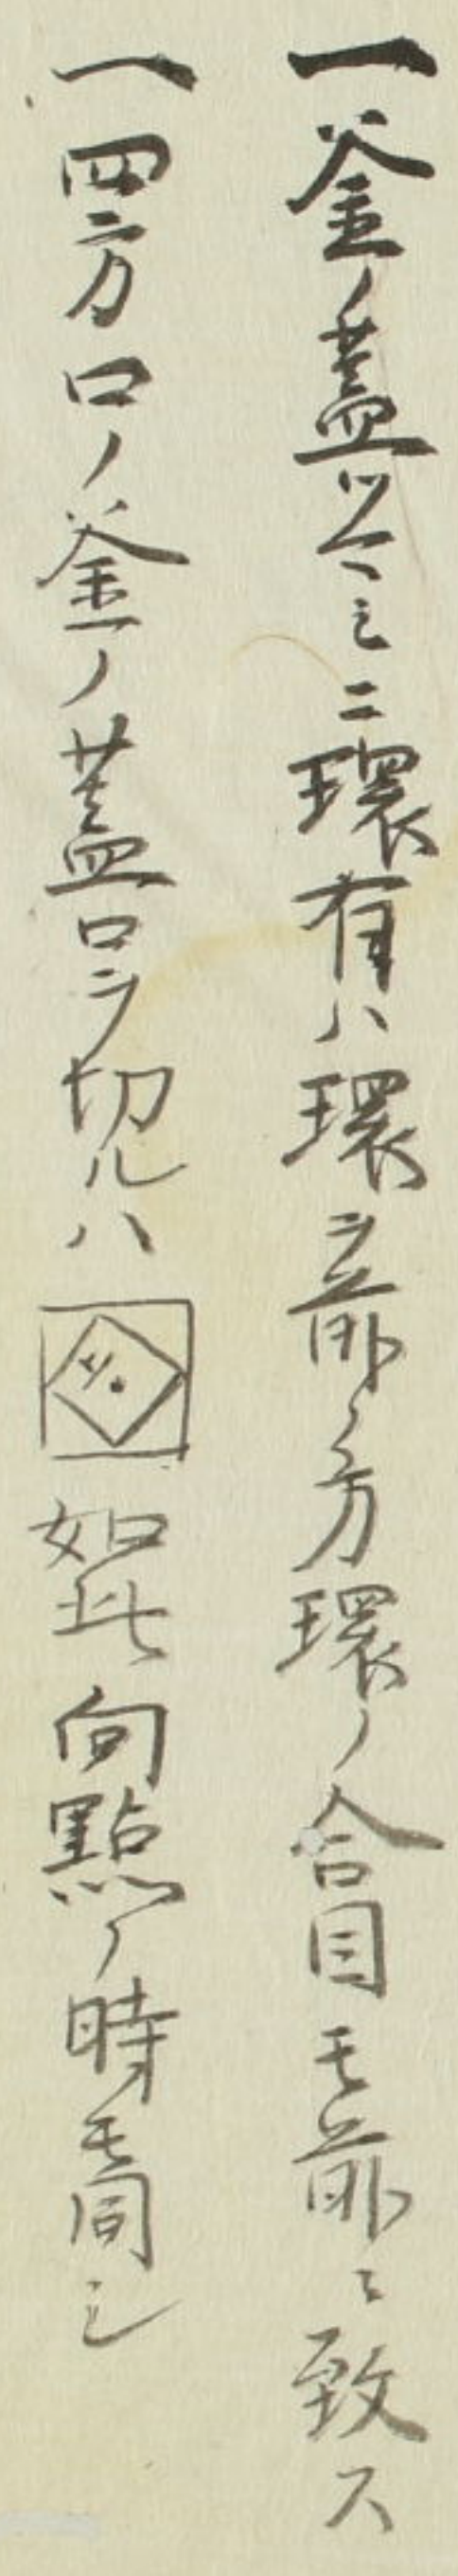 一釜ノ蓋ツマミニ環有ハ環ヲ前ノ方環ノ合目モ前ニ致ス
一四方口ノ釜ノ蓋口ヲ切ルハ如此向點ノ時モ同シ